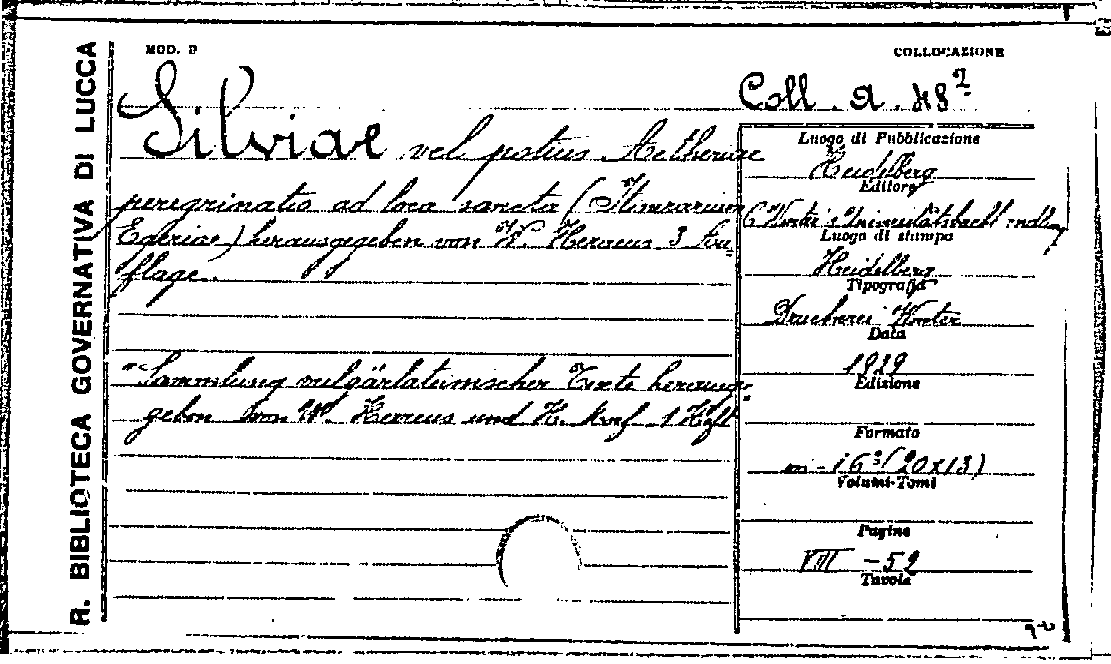 R. BIBLIOTECA GOVERNATIVA DI LUCCA
MOD. P
COLLOCAZIONE
Coll. A. 48²
Silviae vel potius Aetheriae
peregrinatio ad loca sancta (Itinerarium
Egeriae) herausgegeben von W. Heraeus 3 Auf-
flage.
"Sammlung vulgärlateinischer Texte herausge-
geben von W. Heraeus und H. Morf 1 Heft"
Luogo di Pubblicazione
Heidelberg
Editore
C. Winter's Universitätsbuchhandlung
Luogo di stampa
Heidelberg
Tipografia
Druckerei Winter
Data
1929
Edizione
Formato
in-16° (20x13)
Volumi-Tomi
Pagine
VIII - 52
Tavole